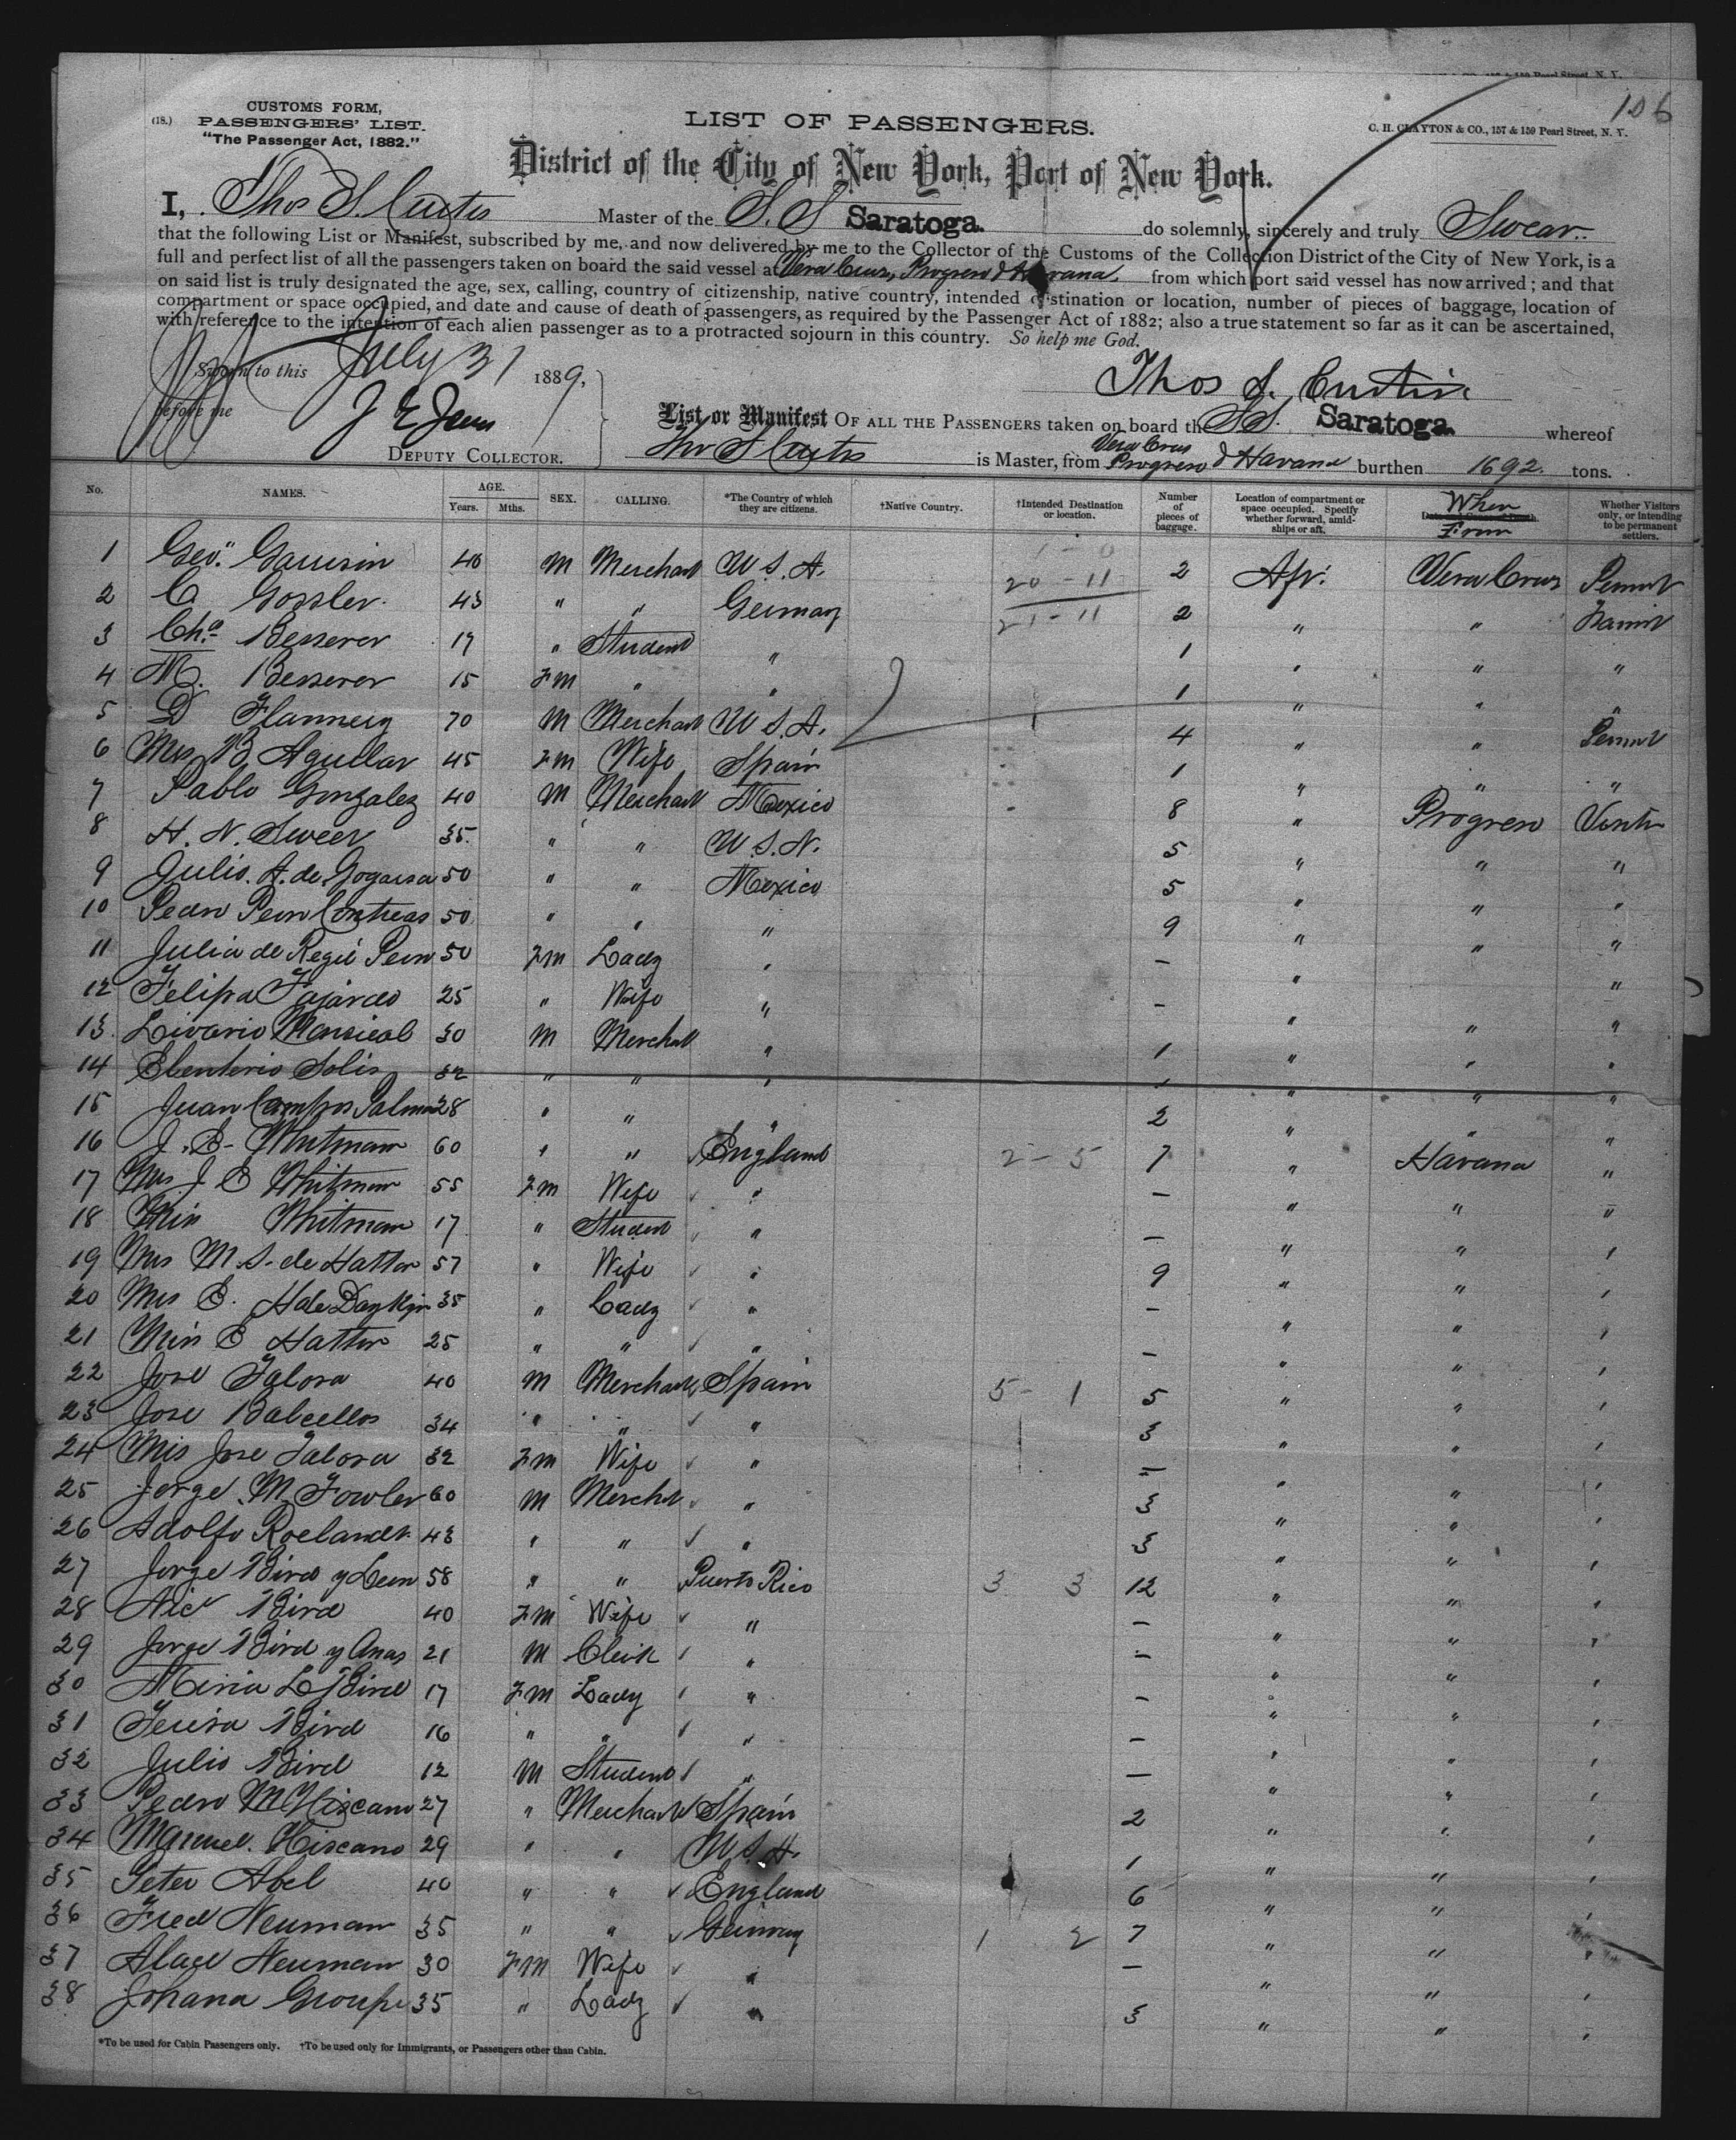 106
CUSTOMS FORM,
(18.) PASSENGERS' LIST.
"The Passenger Act, 1882."
LIST OF PASSENGERS.
C. H. CLAYTON & CO., 157 & 159 Pearl Street, N. Y.
District of the City of New York, Port of New York.
I, Thos S. Curtis Master of the S.S Saratoga. do solemnly, sincerely and truly Swear
that the following List or Manifest, subscribed by me, and now delivered by me to the Collector of the Customs of the Collection District of the City of New York, is a
full and perfect list of all the passengers taken on board the said vessel at Vera Cruz, Progreso & Havana from which port said vessel has now arrived; and that
on said list is truly designated the age, sex, calling, country of citizenship, native country, intended destination or location, number of pieces of baggage, location of
compartment or space occupied, and date and cause of death of passengers, as required by the Passenger Act of 1882; also a true statement so far as it can be ascertained,
with reference to the intention of each alien passenger as to a protracted sojourn in this country. So help me God.
Sworn to this July 31 1889,
before me
Thos S. Curtis
DEPUTY COLLECTOR.
List or Manifest OF ALL THE PASSENGERS taken on board the SS. Saratoga. whereof
Thos S Curtis is Master, from Vera Cruz Progreso & Havana burthen 1692. tons.
No. NAMES. AGE. Years. Mths. SEX. CALLING. *The Country of which they are citizens. †Native Country. †Intended Destination or location. Number of pieces of baggage. Location of compartment or space occupied. Specify whether forward, amidships or aft. When From Whether Visitors only, or intending to be permanent settlers.
1 Geo. Garrison 40 M Merchant U S. A. 20-11 2 Aft. Vera Cruz
2 C Gossler 43 " " Germany 21-11 2 " "
3 Chas Besserer 17 " Student " 1 " " "
4 M. Besserer 15 Fm " " 1 " " "
5 D 70 M Merchant U S. A. 4 " "
6 Mrs B Aguilar 45 Fm Wife Spain 1 " " "
7 Pablo Gonzalez 40 M Merchant Mexico 8 " Progreso
8 H. N. Sweer 35 " " U. S. N. 5 " " "
9 Julio. A. de 50 " " Mexico 5 " " "
10 Pedro Peon Contreas 50 " " " 9 " " "
11 Julia de Regil Peon 50 Fm Lady " – " "
12 Felipa Fajardo 25 " Wife " – " " "
13 30 M Merchant " 1 " " "
14 Solis 32 " " " " " "
15 Juan Campos Palma 28 " " " 2 " " "
16 J. E. Whitman 60 " " England 2-5 7 " Havana "
17 Mrs J E Whitman 55 Fm Wife " – " " "
18 Miss Whitman 17 " Student " – " " "
19 Mrs M. S. de Hatton 57 " Wife " 9 " " "
20 Mrs E. H de 35 " Lady " – " " "
21 Miss E Hatton 25 " " " – " " "
22 Jose 40 M Merchant Spain 5-1 5 " " "
23 Jose Balcellos 34 " " " 3 " " "
24 Mrs Jose 32 Fm Wife " – " " "
25 Jorge M Fowler 60 M Mercht " 3 " " "
26 Adolfo Roelandt 43 " " " 3 " " "
27 Jorge Bird y Leon 58 " " Puerto Rico 3 3 12 " " "
28 Bird 40 Fm Wife " – " " "
29 Jorge Bird y 21 M Clerk " – " " "
30 Maria L Bird 17 Fm Lady " – " " "
31 Teresa Bird 16 " " " – " " "
32 Julio Bird 12 M Student " – " " "
33 Pedro M 27 " Merchant Spain 2 " " "
34 Manuel 29 " " U S. A. 1 " " "
35 Peter Abel 40 " " England 6 " " "
36 Fred Neuman 35 " " Germany 1 2 7 " " "
37 Neuman 30 Fm Wife " – " " "
38 Johana 35 " Lady " 3 " " "
*To be used for Cabin Passengers only. †To be used only for Immigrants, or Passengers other than Cabin.